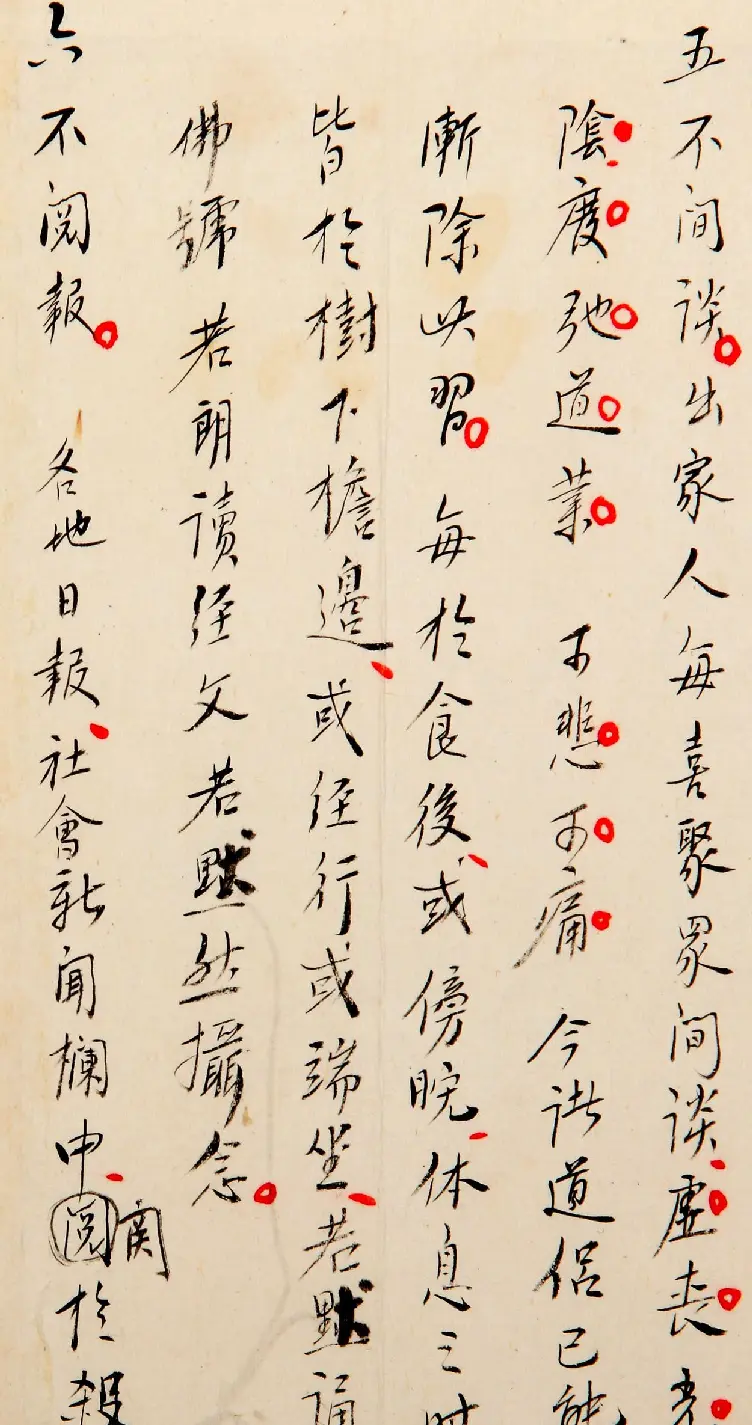 五不閒談。出家人每喜聚眾閒談、虛喪光
陰、廢弛道業。可悲可痛 今諸道侶已能
漸除此習。每於食後、或傍晚、休息之時
皆於樹下檐邊、或經行或端坐、若默誦
佛號若朗讀經文若默然攝念。
六不閱報。各地日報、社會新聞欄中、閱關於殺